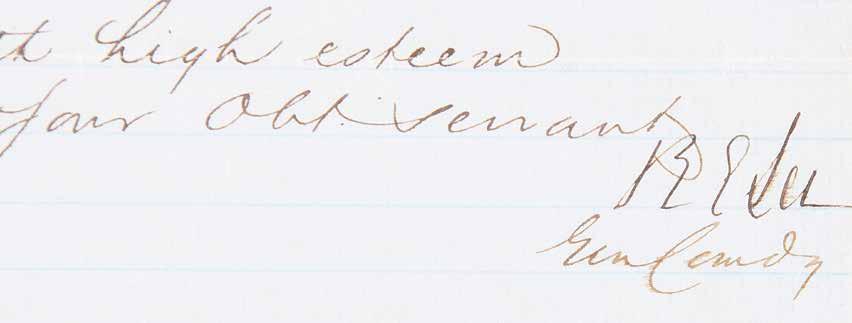 th high esteem
Your Obt. servant
R E Lee
Gen Comdg